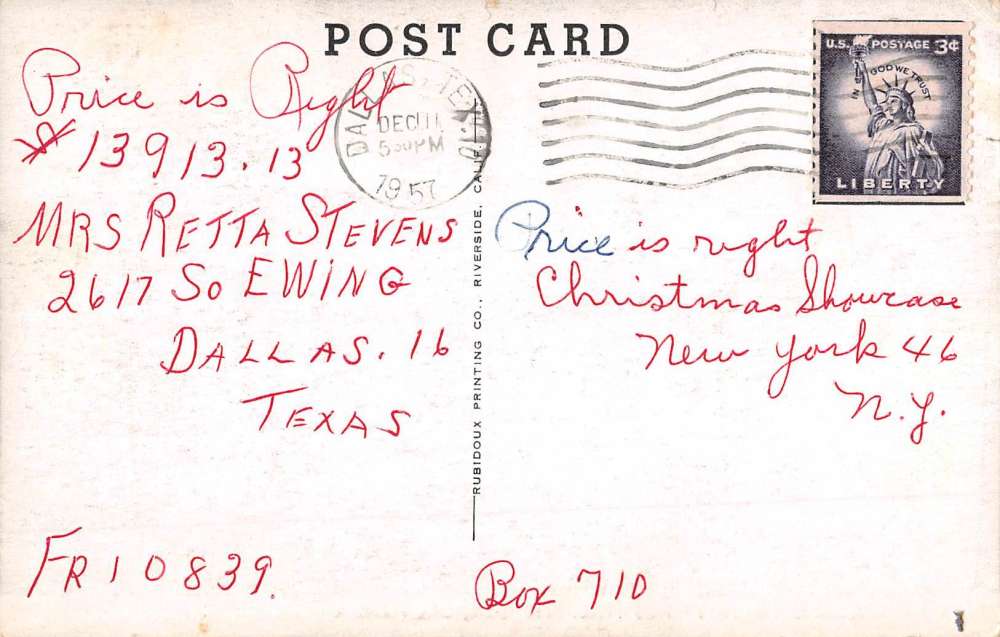 POST CARD
Price is Right
$13913.13
MRS RETTA STEVENS
2617 So EWING
DALLAS. 16
TEXAS
FR10839.
DALLAS, TEX
DEC 11
5:00 PM
1957
U.S. POSTAGE 3¢
IN GOD WE TRUST
LIBERTY
Price is right
Christmas Showcase
New York 46
N.Y.
Box 710
RUBIDOUX PRINTING CO., RIVERSIDE, CALIF.